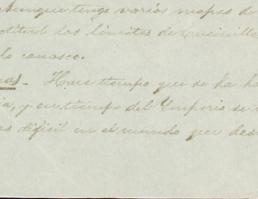 Aunque tengo varios mapas de
los límites de
lo conozco.
Hace tiempo que se ha
y en tiempo del Imperio se
difícil en el mundo que